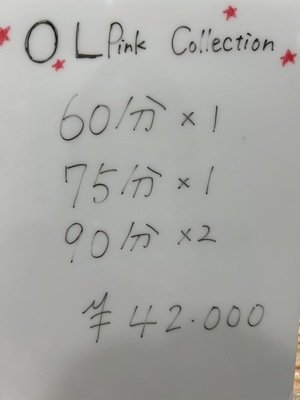 OL Pink Collection
60分×1
75分×1
90分×2
¥42.000